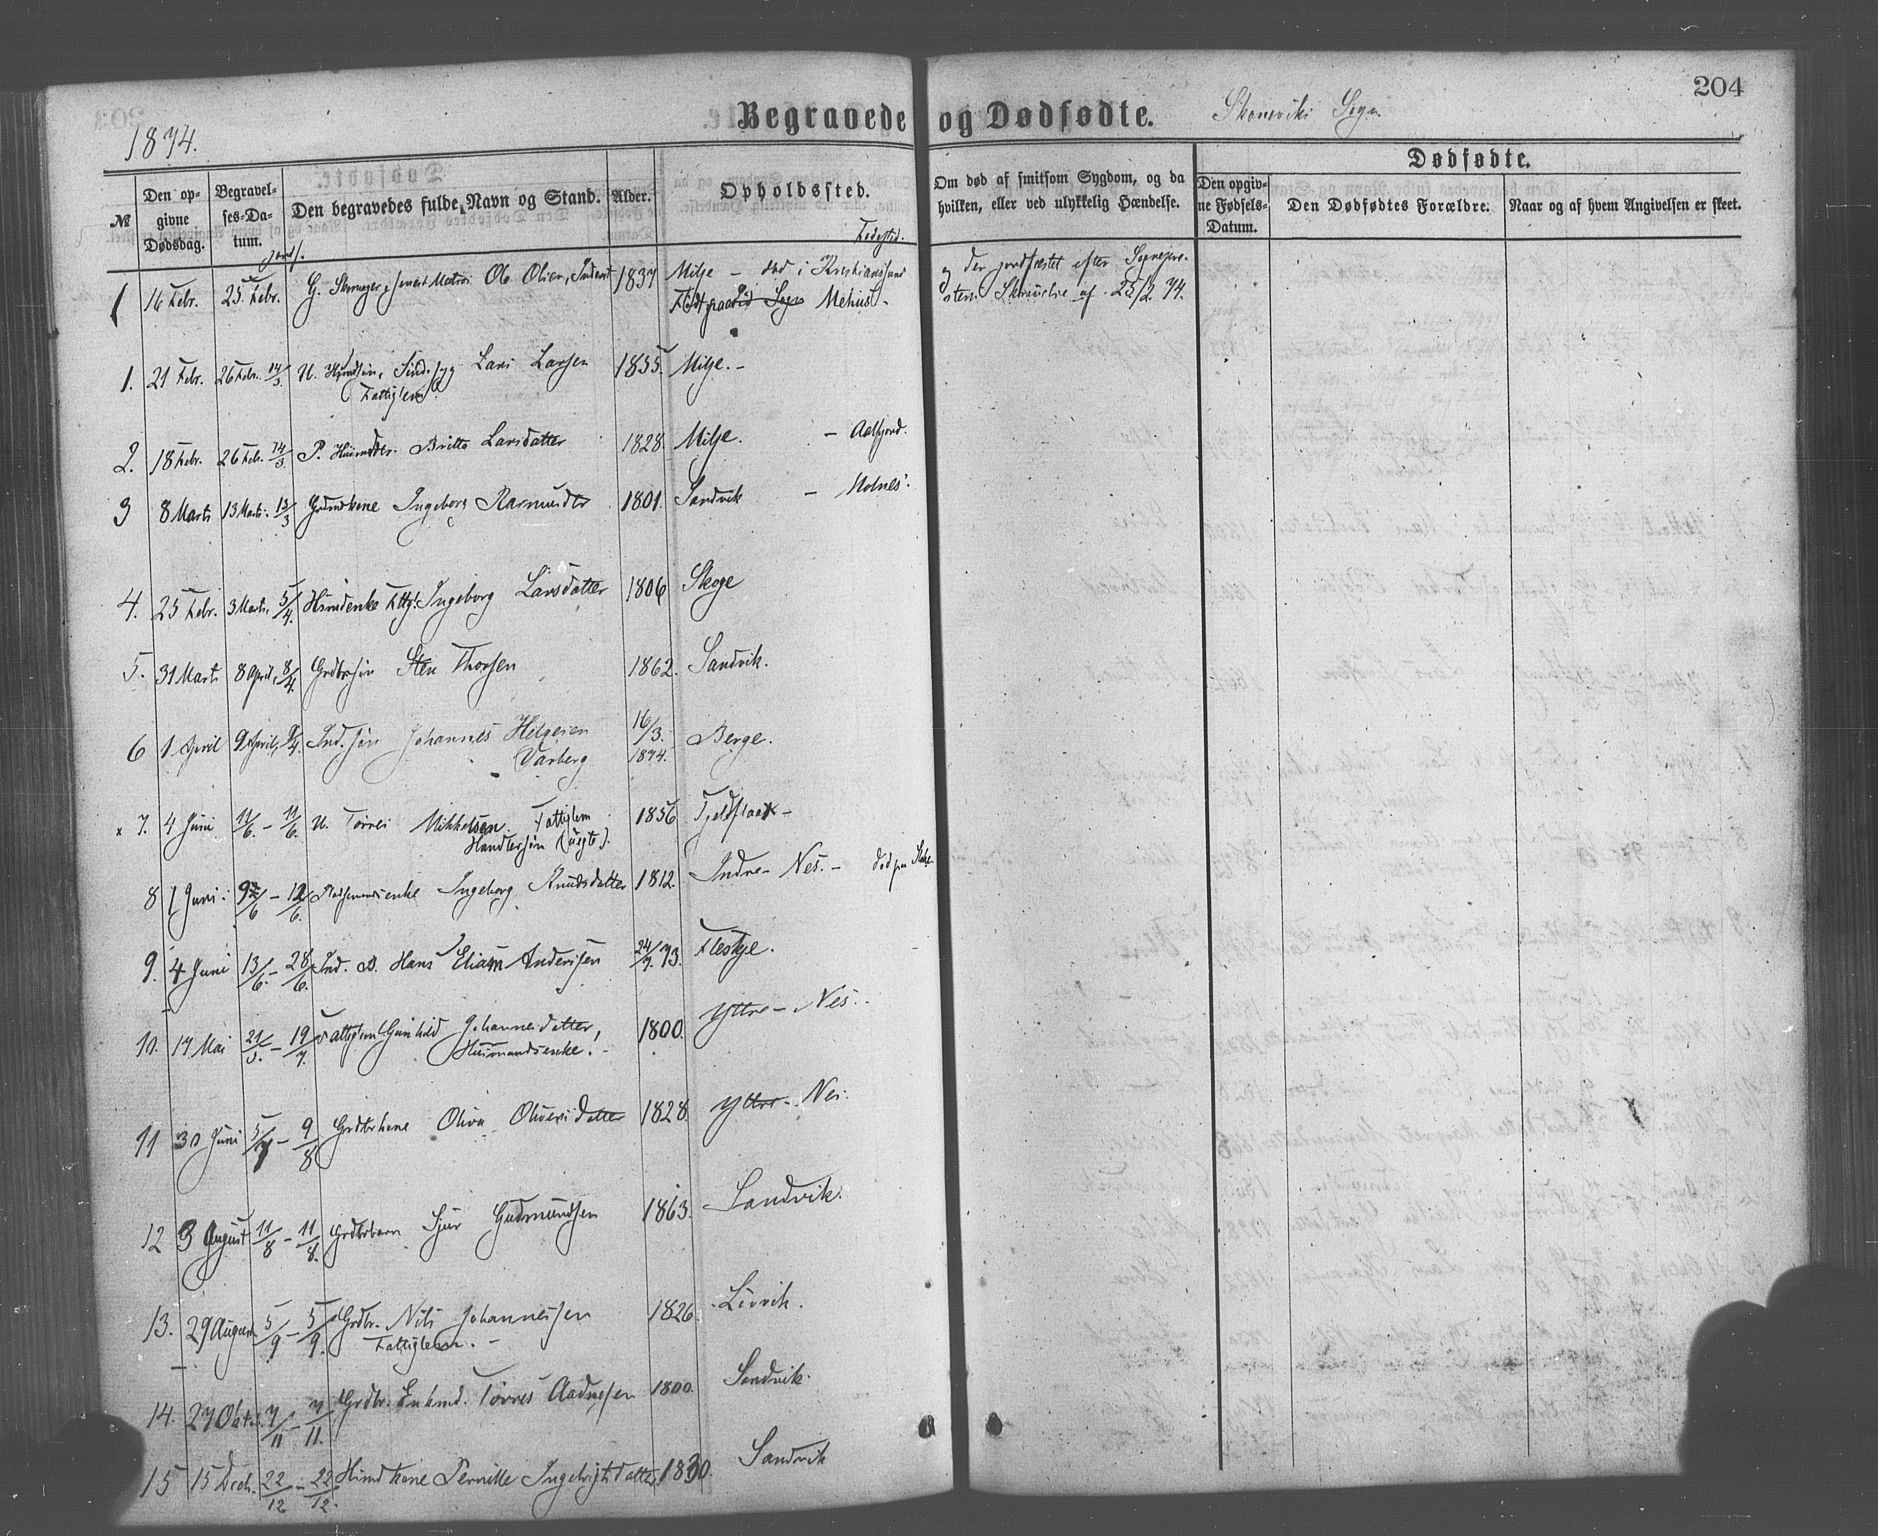 204
Begravede og Dødfødte.
Skoneviks Sogn.
1874.
Dødfødte.
№
Den opgivne Dødsdag.
Begravelses-Datum.
Den begravedes fulde Navn og Stand.
Alder.
Opholdssted.
Om død af smitsom Sygdom, og da hvilken, eller ved ulykkelig Hændelse.
Den opgivne Fødsels-Datum.
Den Dødfødtes Forældre.
Naar og af hvem Angivelsen er skeet.
Fødested.
1 16 Febr. 25. Febr. Ole Olsen, 1837 Milje – død i Kristianssund
og der jordfæstet efter
af 25/2 74.
1. 21 Febr. 26 Febr. 14/3 Lars Larsen 1855. Milje. –
Fattiglem
2. 18 Febr. 26 Febr. 14/3 Britta Larsdatter 1828. Milje. – Aalfjord.
3 8 Marts 13 Marts. 13/3 Ingeborg Rasmusdtr 1801. Sandvik – Molnes.
4. 25 Febr. 3 Marts, 5/4. Ingeborg Larsdatter 1806 Skoge
5. 31 Marts 8 April, 8/4. Grdbrsøn Sten Thorsen 1862. Sandvik.
6 1 April 9 April, 9/4. Ind. søn Johannes Helgesen 16/3. 1874. Berge.
Varberg
x 7. 4 Juni 11/6. – 11/6. U. Tørres Mikkelsen Fattiglem 1856
(uegte).
8 1 Juni Ingeborg Knudsdatter 1812. Indre – Nes. –
9. 4 Juni 13/6. – 28/6. Ind. B. Hans Andersen 24/7. 73. Fleskje.
10. 17 Mai 21/5. – 19/7. Fattiglem Gunhild Johannesdatter, 1800. Yttre – Nes.
Husmandsenke.
11 30 Juni 5/7 – 9/8 Grdbrkone Oliva Oliversdatter 1828 Yttre – Nes.
12 3 August 11/8 – 11/8. Grdbrbarn Sjur Gudmundsen 1863. Sandvik.
13. 29 August 5/9 – 5/9. Grdbr. Nils Johannessen 1826 Livvik.
Fattiglem. –
14. 27 Oktr. 7/11 – 7/11. Grdbr. Enkmd. Tørres Aadnesen 1800. Sandvik.
15 15 Decb. 22/12 – 22/12. Hmdkone Pernille Ingebrigtsdatter 1830. Sandvik